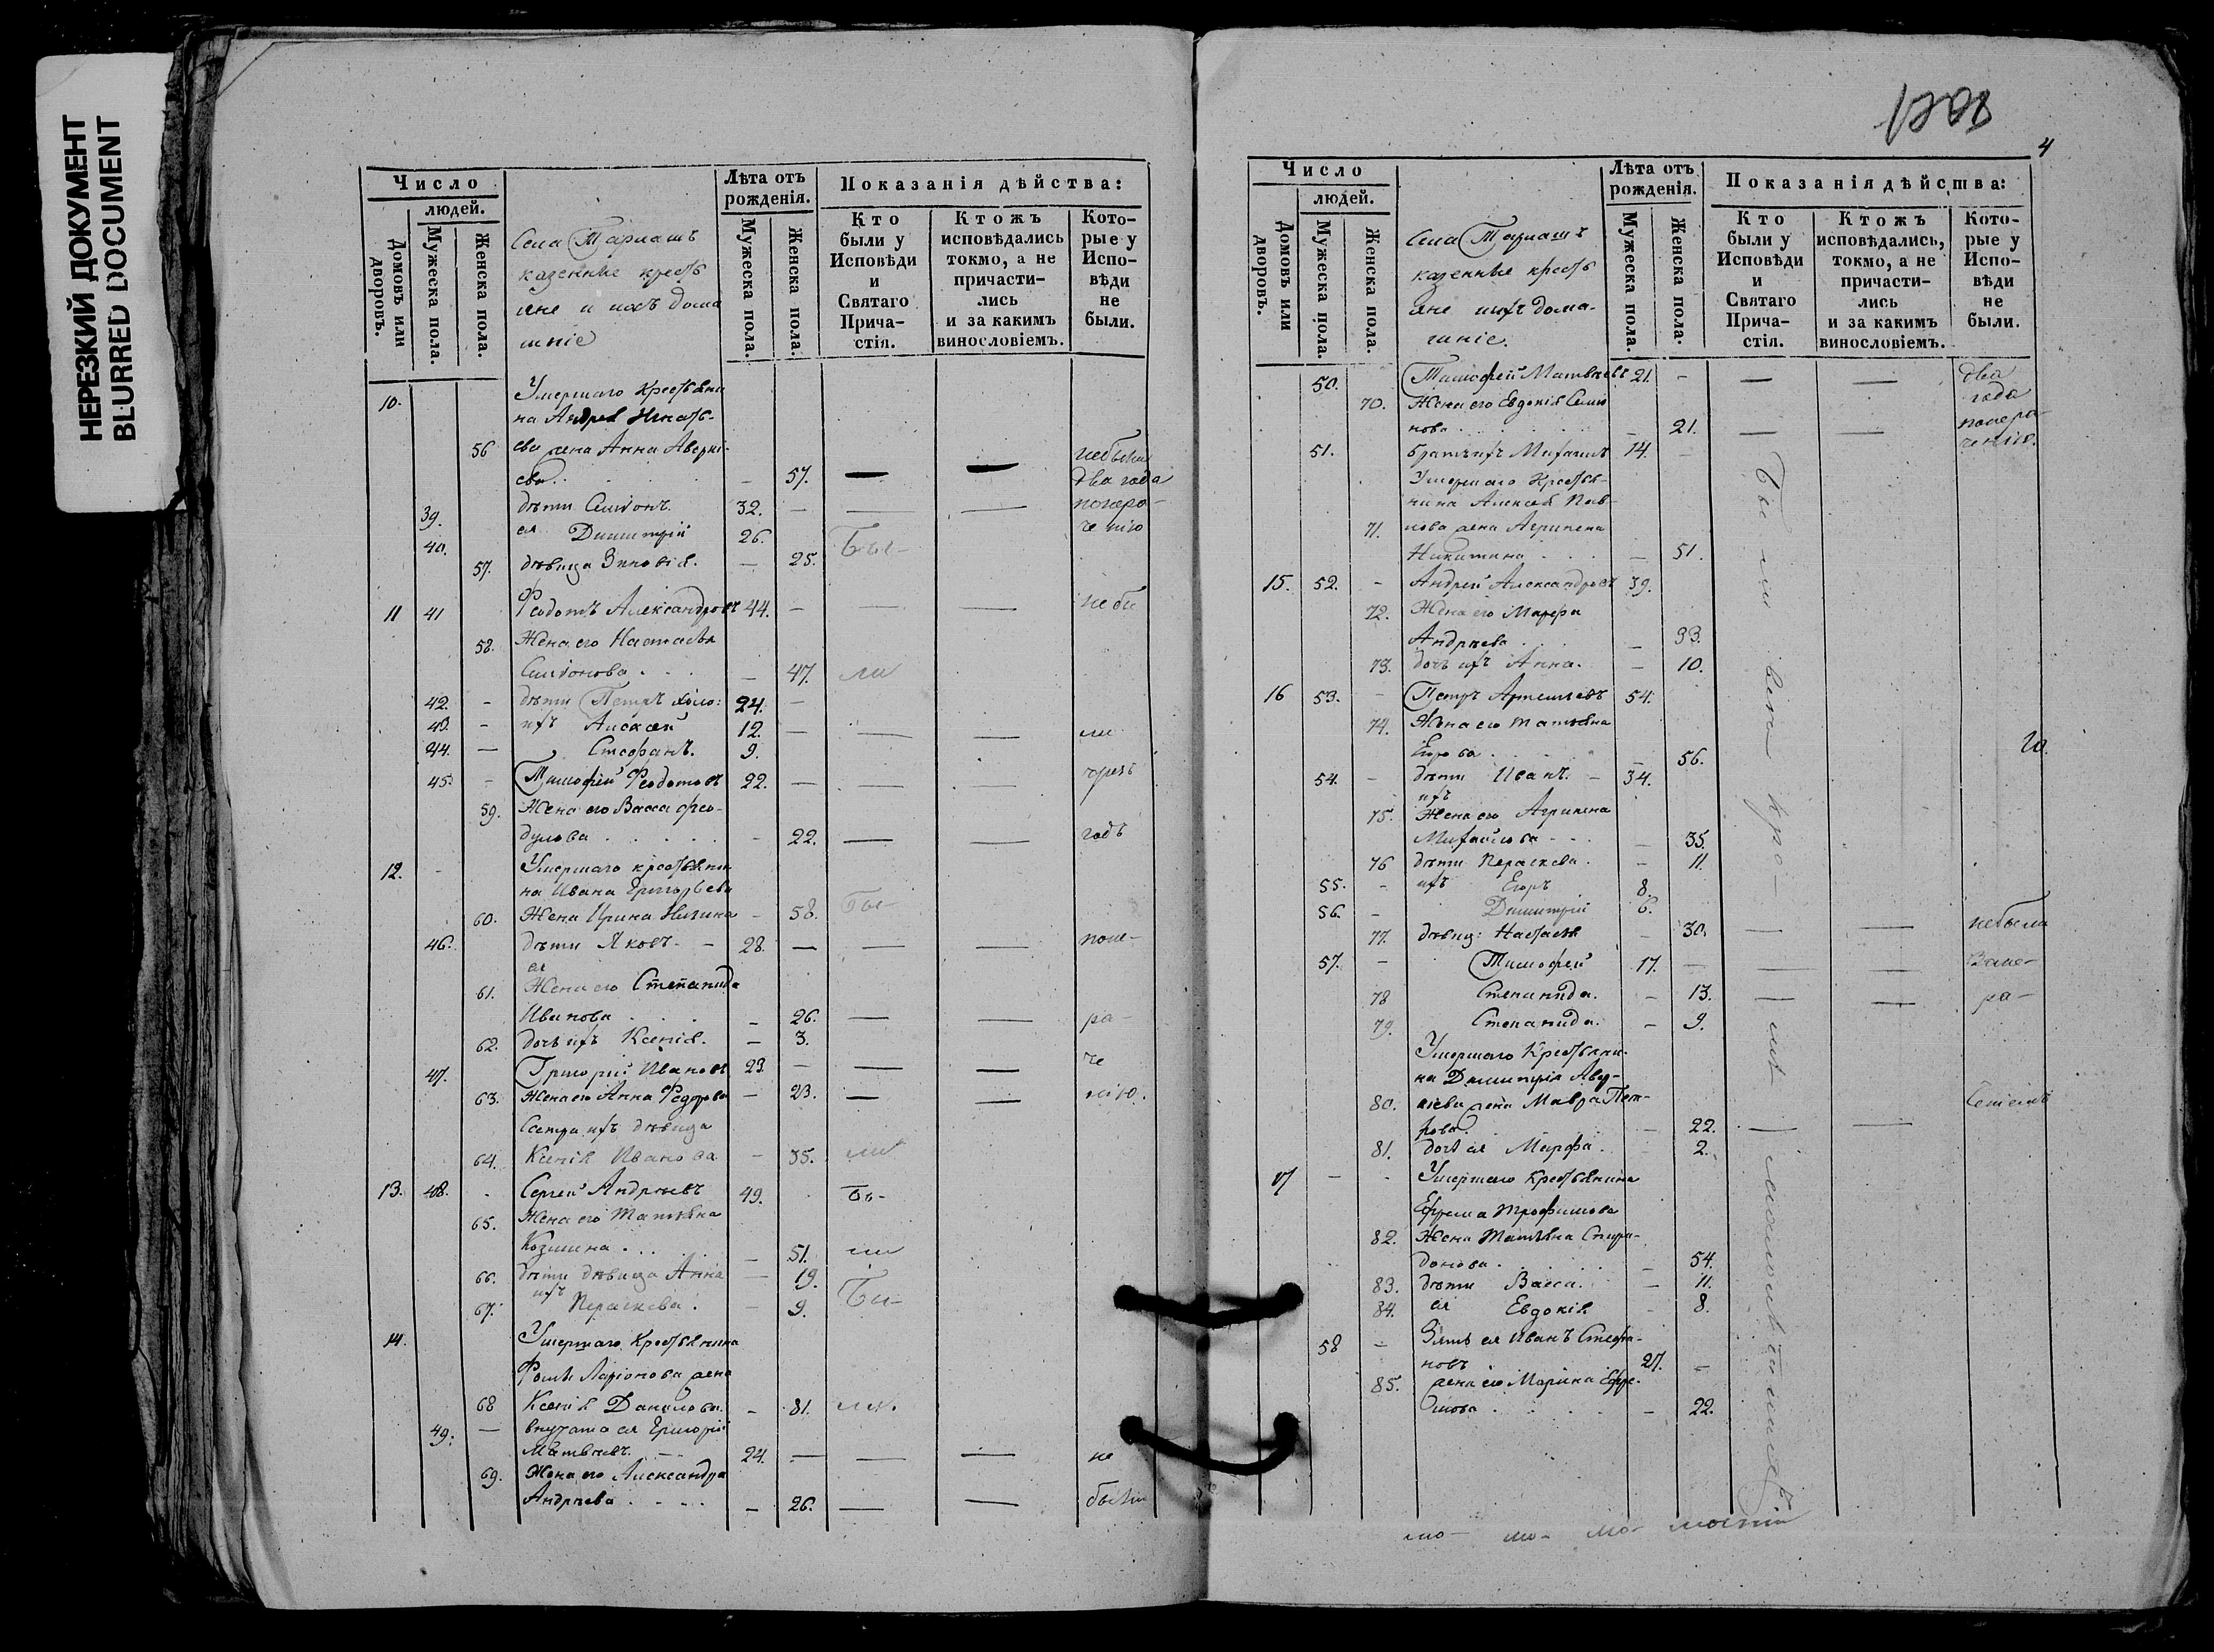 НЕРЕЗКИЙ ДОКУМЕНТ
BLURRED DOCUMENT
Число
людей.
Домовъ или дворовъ.
Мужеска пола.
Женска пола.
Села Тарлашъ
казенные кресть
яне и ихъ дома
шніе
Лѣта отъ рожденія.
Мужеска пола.
Женска пола.
Показанія дѣйства:
Кто были у Исповѣди и Святаго Причастія.
Ктожъ исповѣдались токмо, а не причастились и за какимъ винословіемъ.
Которые у Исповѣди не были.
10. Умершаго Крестьяни
на Андрея Игнать-
56 ева жена Анна Аверкі- небыли
ева. — 57. — — два года
39. дѣти Симіонъ. 32. — — — понера-
40. ея Димитрій 26. Бы- ченію
57. дѣвица Зиновія. — 25.
11 41 Феодотъ Александровъ 44. — — — не бы
58. Жена его Настасья
Симіонова — 47. ли
42. — дѣти Петръ холо: 24. —
43. — ихъ Алексѣй 12. — — — ли
44. — Стефанъ. 9.
45. — Тимофей Феодотовъ 22. — — — чрезъ
59. Жена его Васса Фео-
дулова — 22. — — годъ
12. — Умершаго крестьяни
на Ивана Григорьева
60. Жена Ирина — 58. Бы-
46. дѣти Яковъ — 28. — — — поне-
ея
61. Жена его Степанида
Иванова — 26. — — ра-
62. дочь ихъ Ксенія. — 3.
47. Григорій Ивановъ 23. — — — че
63. Жена его Анна Федорова — 23. — — нію.
Сестра ихъ дѣвица
64. Ксенія Иванова — 35. ли
13. 48. Сергей Андреевъ 49. Бы-
65. Жена его Татьяна
Козмина — 51. ли
66. дѣти дѣвица Анна — 19.
67. ихъ Параскева. — 9. Бы-
14. Умершаго Крестьянина
Фомы Ларіонова жена
68 Ксенія Данилова — 81. ли.
49. — внучата ея Григорій
Матвѣевъ. — 24. — — — не
69. Жена его Александра
Андреева — 26. — — были
4
Число
людей.
Домовъ или дворовъ.
Мужеска пола.
Женска пола.
Села Тарлашъ
казенные кресть
яне ихъ дома-
шніе.
Лѣта отъ рожденія.
Мужеска пола.
Женска пола.
Показанія дѣйства:
Кто были у Исповѣди и Святаго Причастія.
Ктожъ исповѣдались, токмо, а не причастились и за какимъ винословіемъ.
Которые у Исповѣди не были.
50. Тимофей Матвѣевъ 21. — — — два
70. Жена его Евдокія Сими года
нова — 21. — — понера-
51. братъ ихъ Михаилъ 14. — ченію.
Умершаго Крестья-
нина Алексея Пав-
71. лова жена Агрипена
Никитина — 51.
15. 52. — Андрей Александровъ 39.
72. Жена его Марфа
Андреева — 33.
73. дочь ихъ Анна. — 10.
16 53. — Петръ Артемьевъ 54.
74. Жена его Татьяна
Егорова — 56.
54. — дѣти Иванъ. — 34.
ихъ
75. Жена его Агрипена
Михайлова — 35.
76 дѣти Параскева. — 11.
55. — ихъ Егоръ 8.
56. — Димитрій 6.
77. дѣвиц: Настасья — 30. — — небыли
57. — Тимофей 17. — — — Запе-
78 Степанида. — 13. — — ра-
79. Степанида. — 9.
Умершаго Крестьяни-
на Димитрія Авер-
80. кіева жена Мавра Пет-
рова — 22. — —
81. дочь ея Марфа. — 2.
17 — — Умершаго Крестьянина
Ефрема Трофимова
82. Жена Татьяна Спири-
донова — 54.
83. дѣти Васса. — 11.
84. ея Евдокія — 8.
58 — Зять ея Иванъ Стефа-
новъ 27. —
85. жена его Марина Ефре-
мова — 22.